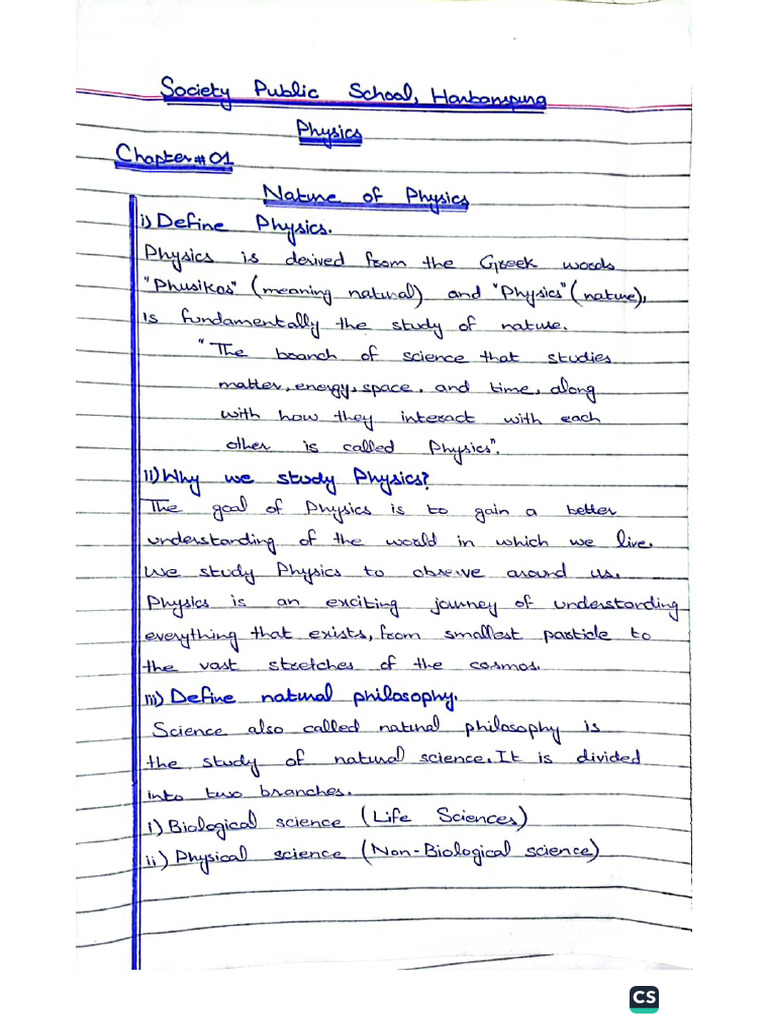 Society Public School, Harbanspura
Physics
Chapter # 01
Nature of Physics
i) Define Physics.
Physics is derived from the Greek words
"Phusikos" (meaning natural) and "Physics" (nature),
is fundamentally the study of nature.
"The branch of science that studies
matter, energy, space, and time, along
with how they interact with each
other is called Physics".
ii) Why we study Physics?
The goal of Physics is to gain a better
understanding of the world in which we live.
We study Physics to observe around us.
Physics is an exciting journey of understanding
everything that exists, from smallest particle to
the vast stretches of the cosmos.
iii) Define natural philosophy.
Science also called natural philosophy is
the study of natural science. It is divided
into two branches.
i) Biological science (Life Sciences)
ii) Physical science (Non-Biological science)
CS